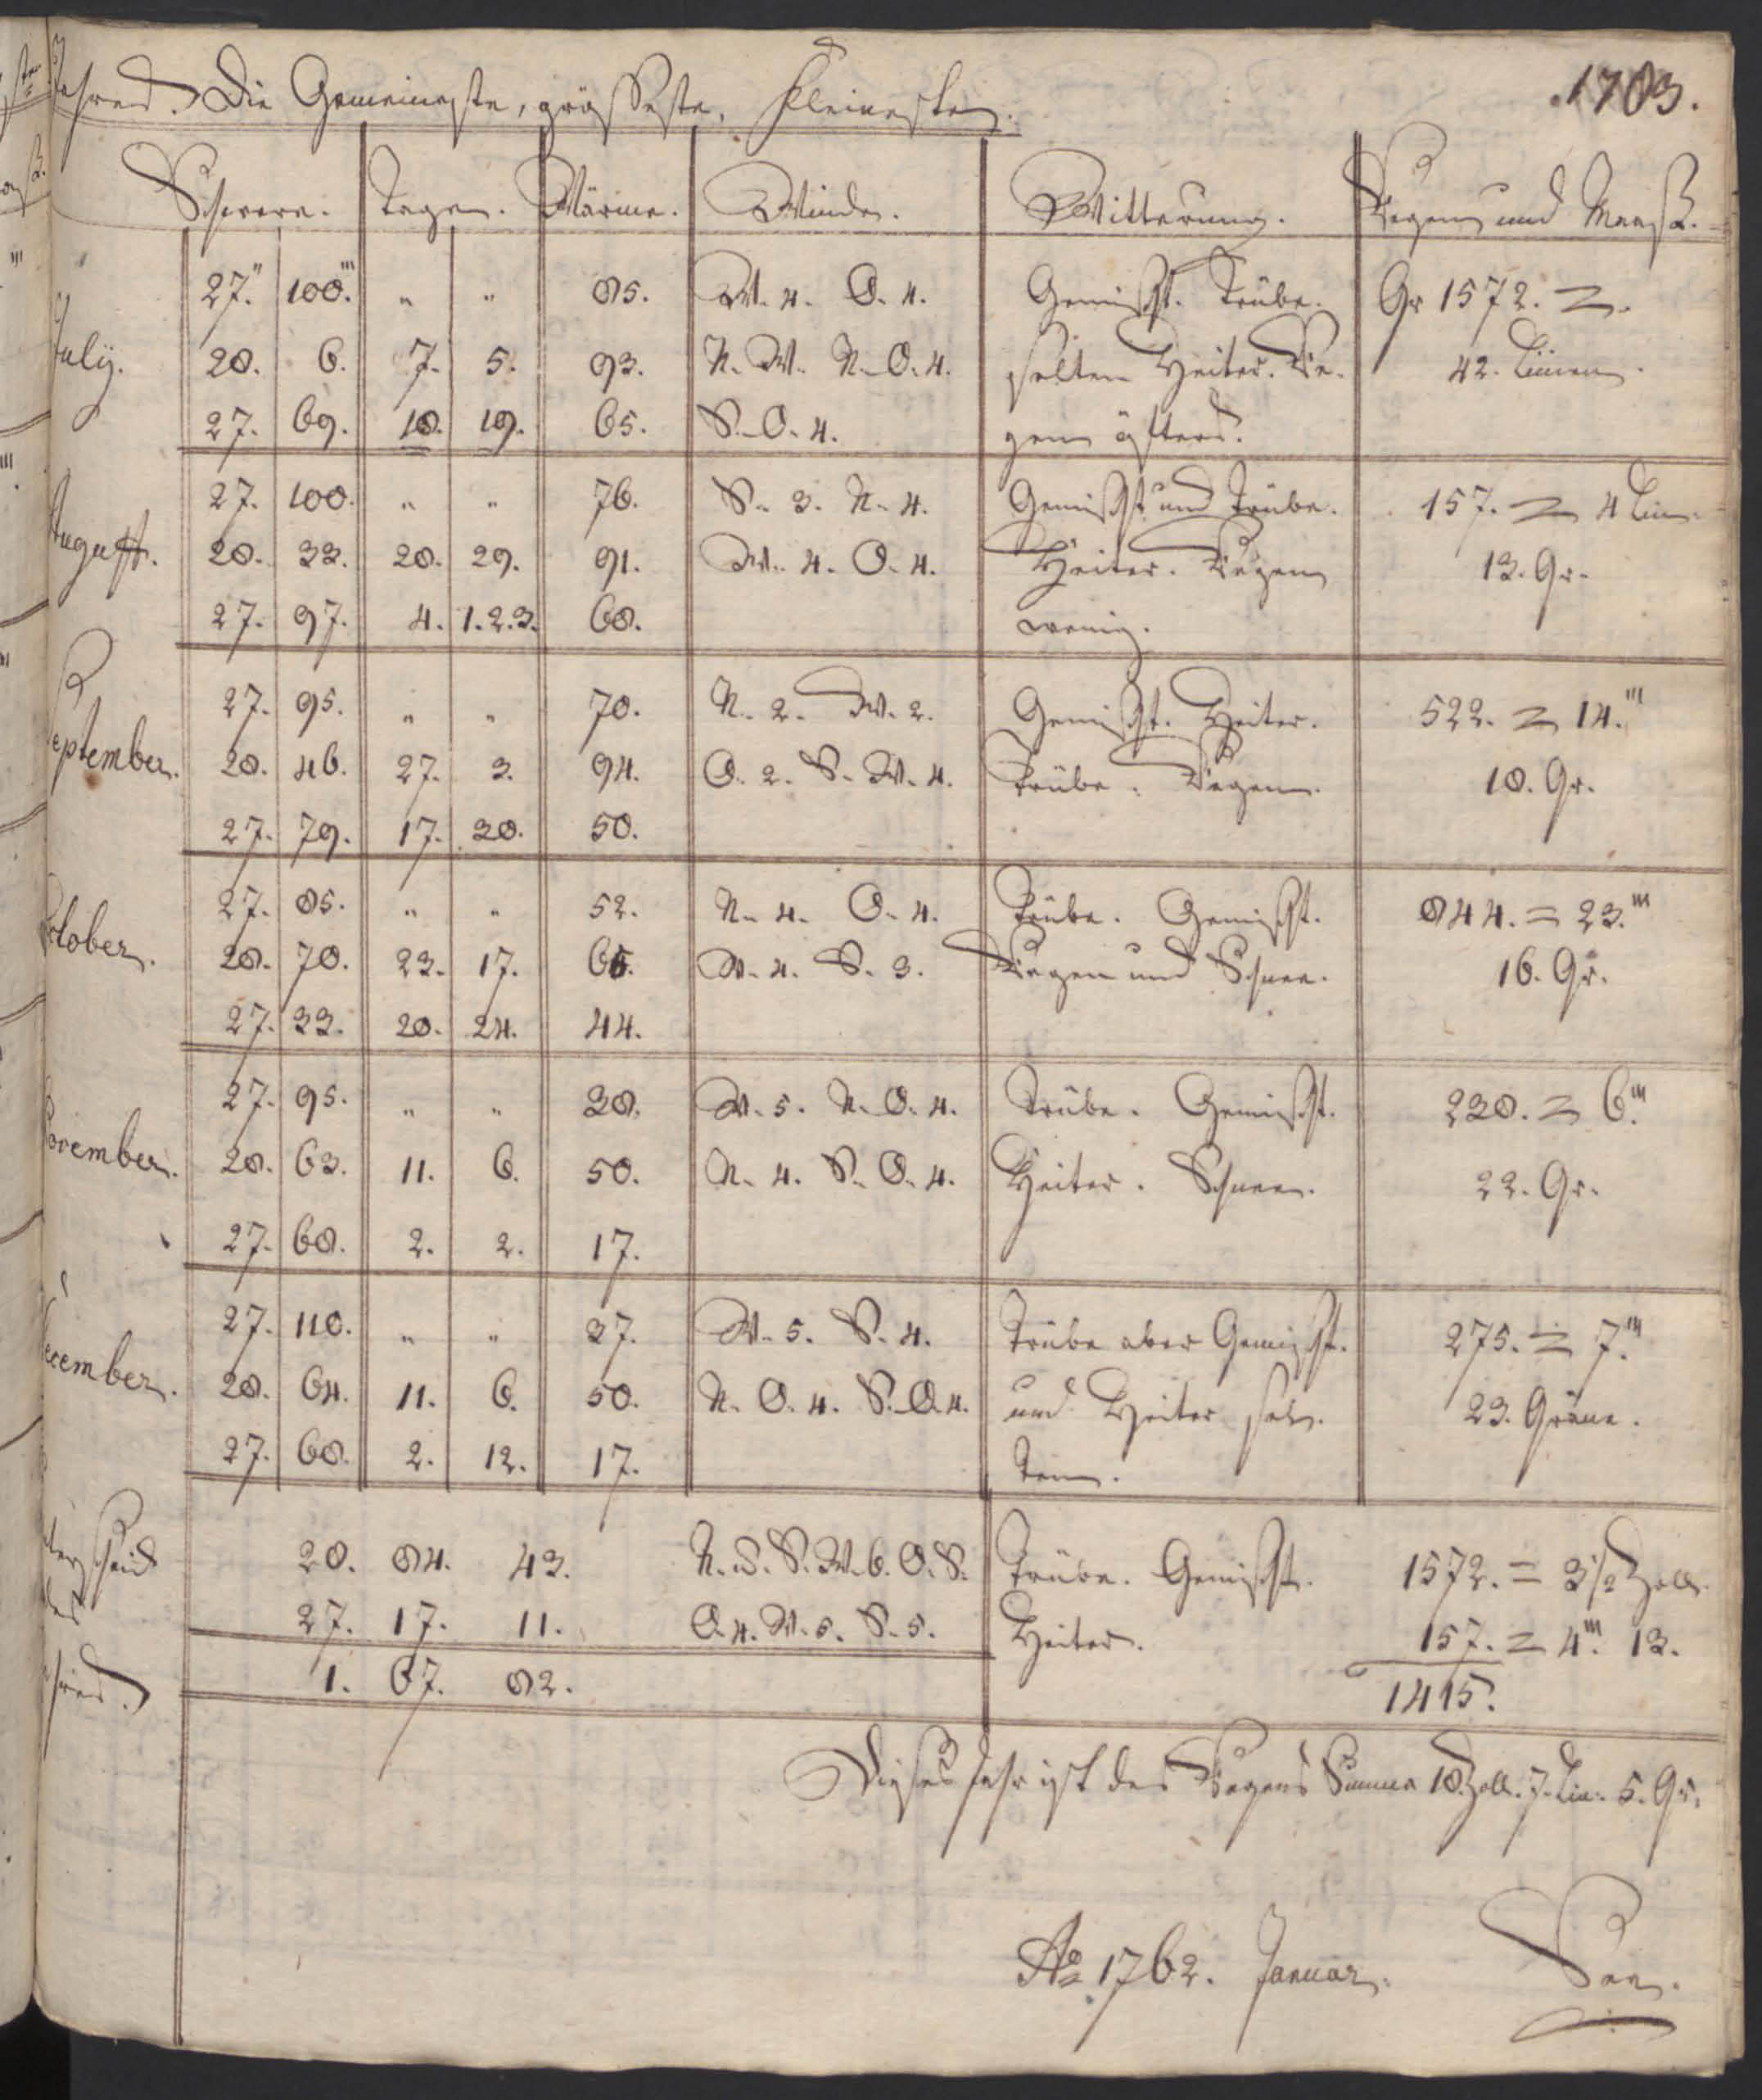 Jahres. Die Gemeineste, grösseste, Kleinesten.
1783.
Schwere. Tagen. Wärme. Winde. Witterung. Regen und Maaß.
27." 100.''' " " 85. W. 4. O. 4. Gemischt. Trübe. Gr 1572. =
July. 28. 6. 7. 5. 93. N. W. N. O. 4. selten Heiter. Re- 42. Linien.
27. 69. 18. 19. 65. S. O. 4. gen öfters.
27. 100. " " 76. S. 3. N. 4. Gemischt und Trübe. 157. = 4 Lin.
August. 28. 33. 28. 29. 91. W. 4. O. 4. Heiter. Regen 13. Gr.
27. 97. 4. 1. 2. 3. 68. wenig.
27. 95. " " 70. N. 2. W. 2. Gemischt. Heiter. 522. = 14.'''
September. 28. 46. 27. 3. 94. O. 2. S. W. 4. Trübe. Regen. 18. Gr.
27. 79. 17. 30. 50.
27. 85. " " 52. N. 4. O. 4. Trübe. Gemischt. 844. = 23.'''
October. 28. 70. 23. 17. 65. W. 4. S. 3. Regen und Schnee. 16. Gr.
27. 33. 28. 24. 44.
27. 95. " " 38. W. 5. N. O. 4. Trübe. Gemischt. 238. = 6.'''
November. 28. 63. 11. 6. 50. N. 4. S. O. 4. Heiter. Schnee. 22. Gr.
27. 68. 2. 2. 17.
27. 110. " " 37. W. 5. S. 4. Trübe aber Gemischt. 275. = 7.'''
December. 28. 64. 11. 6. 50. N. O. 4. S. O. 4. und Heiter sel- 23. Gräne.
27. 68. 2. 12. 17. ten.
28. 84. 43. N. W. S. W. 6. O. S. Trübe. Gemischt. 1572. = 3 1/2 Zoll.
27. 17. 11. O. 4. W. 5. S. 5. Heiter. 157. = 4.''' 13.
1. 67. 82. 1415.
Dieses Jahr ist des Regens Summa 18. Zoll. 7. Lin. 5. Gr.
Ao. 1762. Januar.